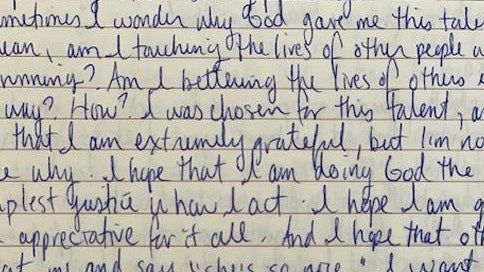 ometimes I wonder why God gave me this tale
ean, am I touching the lives of other people w
unning? Am I bettering the lives of others
why? How? I was chosen for this talent, a
that I am extremely grateful, but I'm no
e why. I hope that I am doing God the
plest justice in how I act. I hope I am g
appreciative for it all. And I hope that oth
at me and say "she's so nice." I want